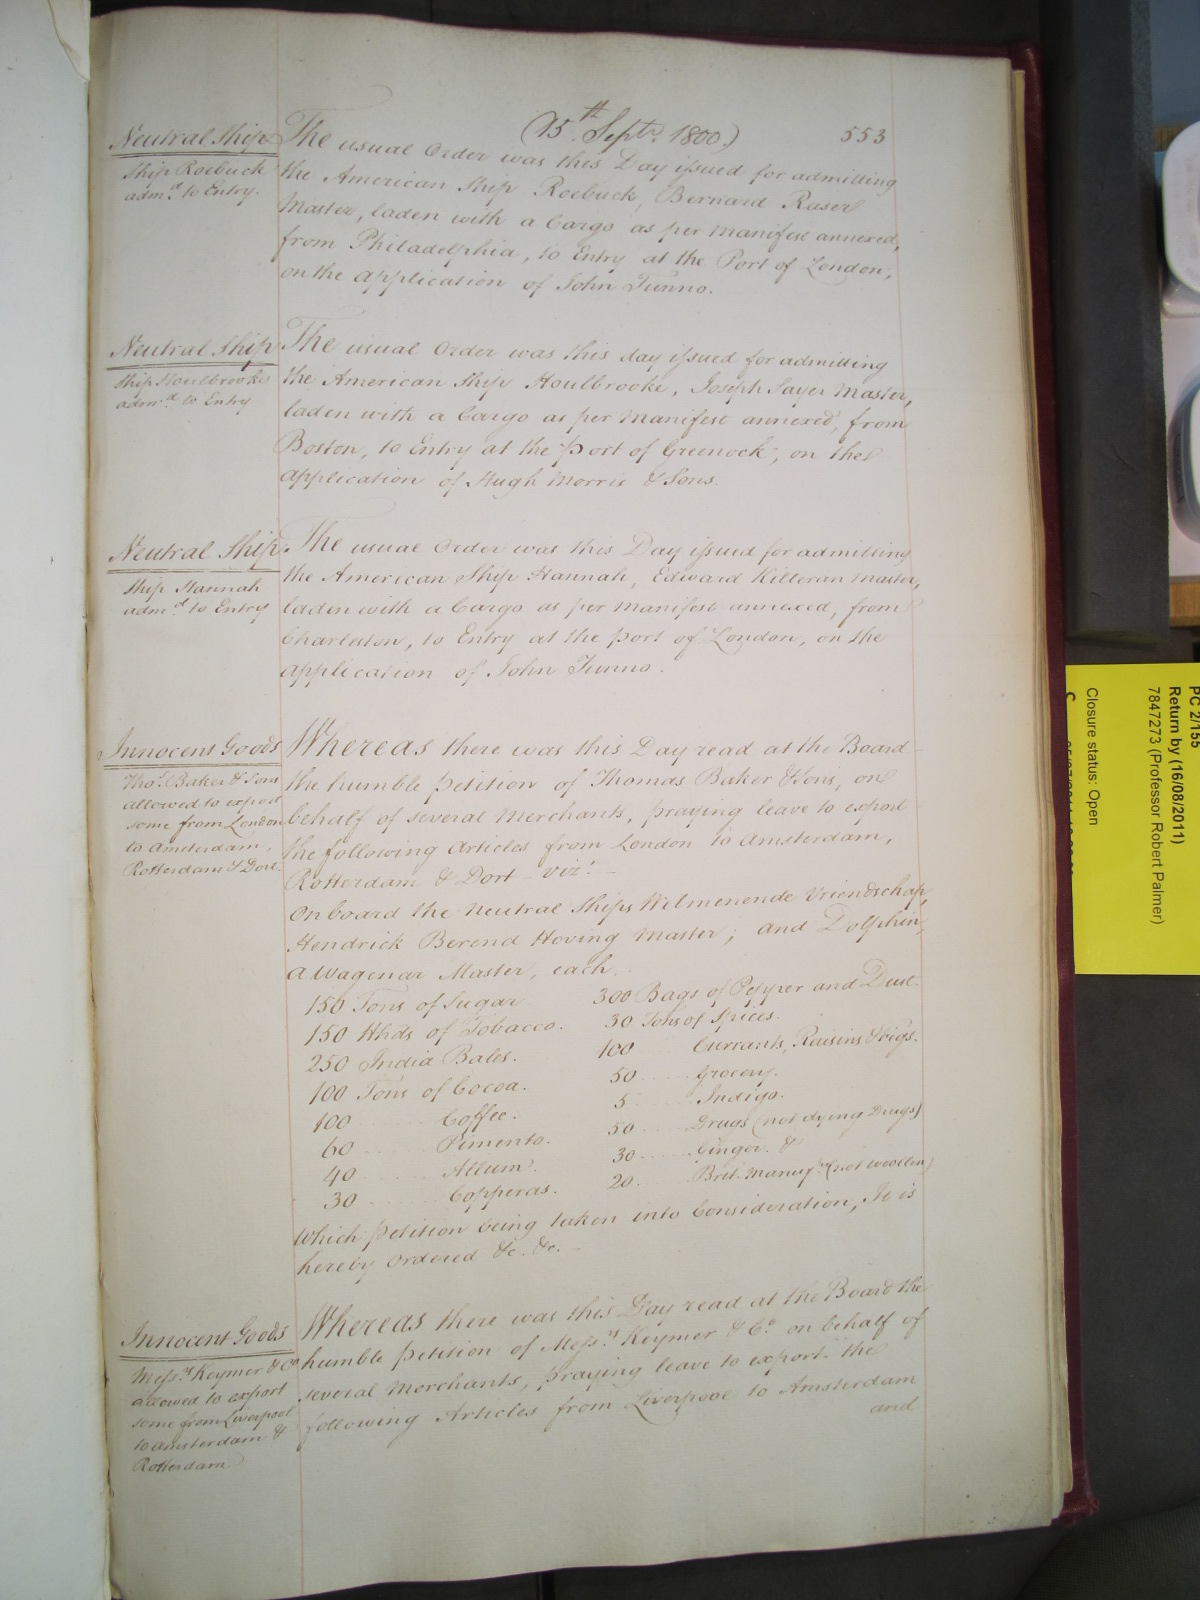 (15th. Septr. 1800.) 553
Neutral Ship
Ship Roebuck
admd. to Entry.
The usual Order was this Day issued for admitting
the American Ship Roebuck, Bernard Raser
Master, laden with a Cargo as per Manifest annexed,
from Philadelphia, to Entry at the Port of London,
on the application of John Tunno.
Neutral Ship
Ship Houlbrooke
admd. to Entry
The usual Order was this day issued for admitting
the American Ship Houlbrooke, Joseph Sayer Master,
laden with a Cargo as per Manifest annexed, from
Boston, to Entry at the Port of Greenock, on the
application of Hugh Morris & Sons.
Neutral Ship.
Ship Hannah
admd. to Entry
The usual Order was this Day issued for admitting
the American Ship Hannah, Edward Killeran Master,
laden with a Cargo as per Manifest annexed, from
Charleston, to Entry at the port of London, on the
application of John Tunno.
Innocent Goods
Thos. Baker & Sons
allowed to export
some from London
to Amsterdam,
Rotterdam & Dort.
Whereas there was this Day read at the Board
the humble Petition of Thomas Baker & Sons, on
behalf of several Merchants, praying leave to export
the following Articles from London to Amsterdam,
Rotterdam & Dort - vizt. -
On board the Neutral Ships Welmenende Vriendschap,
Hendrick Berend Hoving Master; and Dolphin,
A Wagenar Master, each.
150 Tons of Sugar
150 Hhds of Tobacco.
250 India Bales.
100 Tons of Cocoa.
100 ...... Coffee.
60 ...... Pimento.
40 ...... Allum.
30 ...... Copperas.
300 Bags of Pepper and Dust.
30 Tons of Spices.
100 Currants, Raisins & Figs.
50 ...... Grocery.
5 ...... Indigo.
50 ...... Drugs (not dying Drugs)
30 ...... Ginger. &
20 ...... Brit. Manufrs. (not woollen)
Which petition being taken into Consideration, It is
hereby Ordered &c. &c. -
Innocent Goods
Messrs Keymer & Co
allowed to export
some from Liverpool
to Amsterdam &
Rotterdam
Whereas there was this Day read at the Board the
humble Petition of Messrs. Keymer & Co. on behalf of
several Merchants, praying leave to export the
following Articles from Liverpool to Amsterdam
and
PC 2/155
Return by (16/08/2011)
7847273 (Professor Robert Palmer)
Closure status: Open